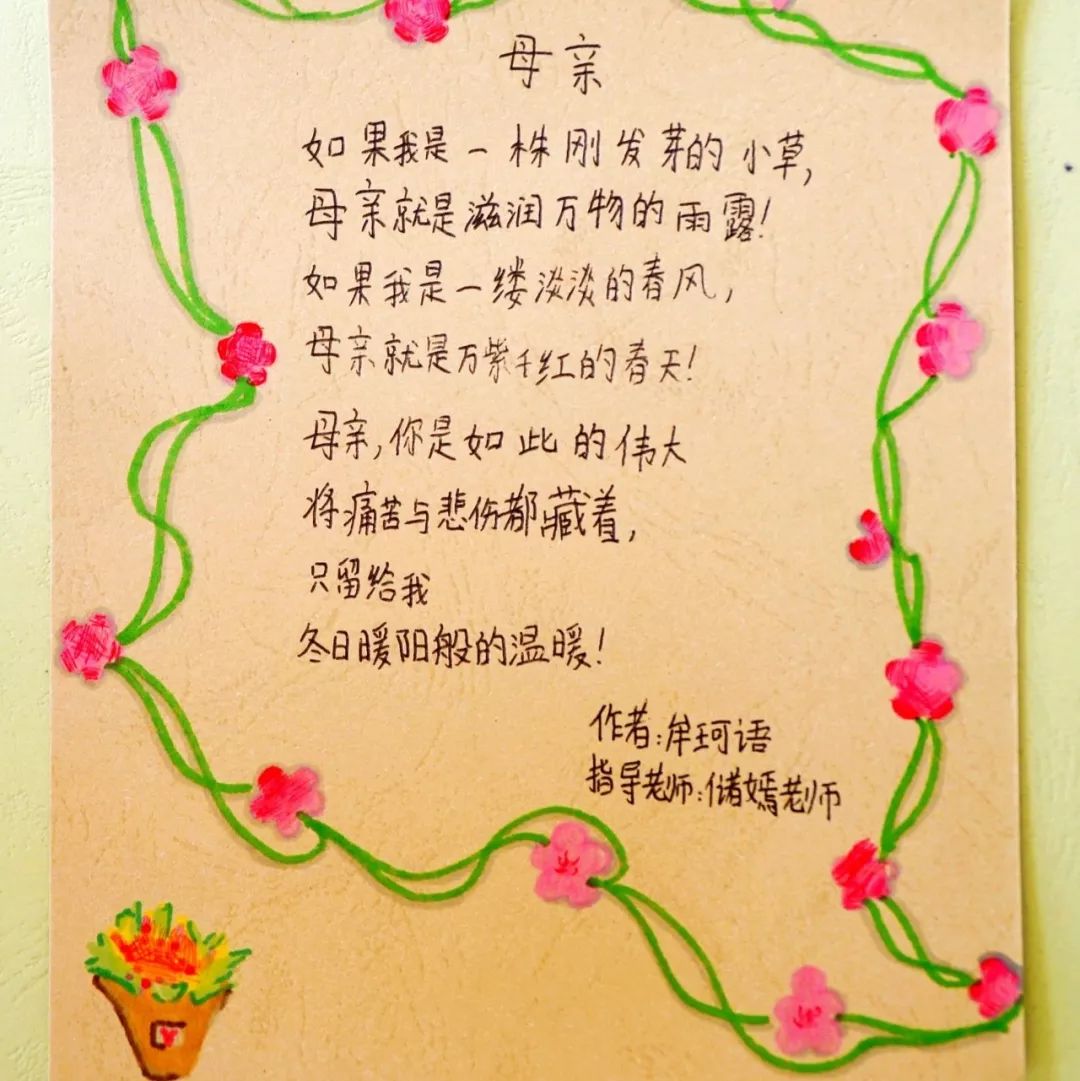 母亲
如果我是一株刚发芽的小草，
母亲就是滋润万物的雨露！
如果我是一缕淡淡的春风，
母亲就是万紫千红的春天！
母亲，你是如此的伟大
将痛苦与悲伤都藏着，
只留给我
冬日暖阳般的温暖！
作者：牟珂语
指导老师：储嫣老师